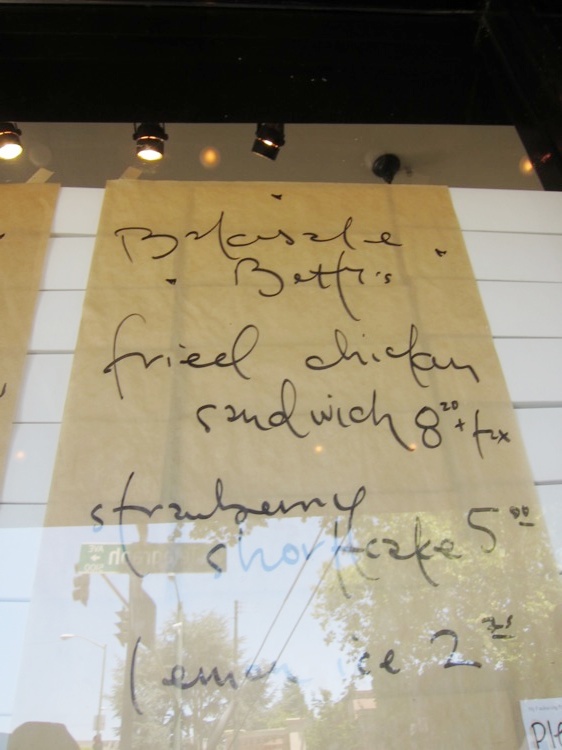 Bakesale
Betty's
fried chicken
sandwich 8²⁰ + tax
strawberry
shortcake 5⁰⁰
lemon ice 2²⁵